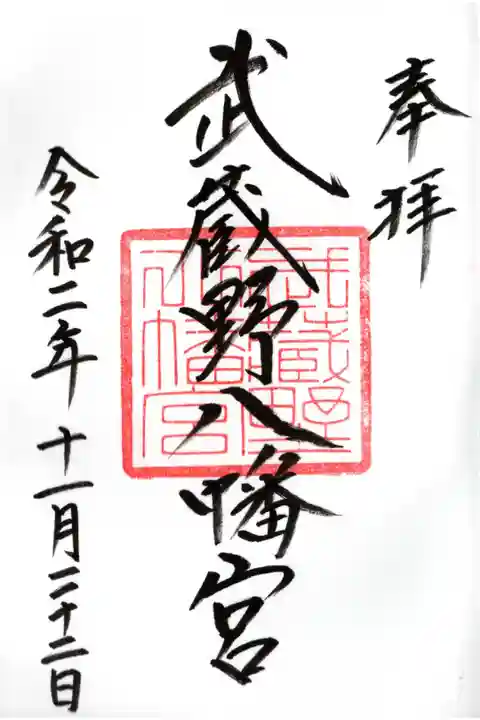 奉拝
武蔵野八幡宮
令和二年十一月二十二日
武蔵野
八幡宮